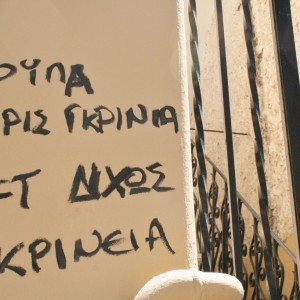 ΟΥΠΑ
ΡΙΣ ΓΚΡΙΝΙΑ
ΕΤ ΔΙΧΩΣ
ΚΡΙΝΕΙΑ